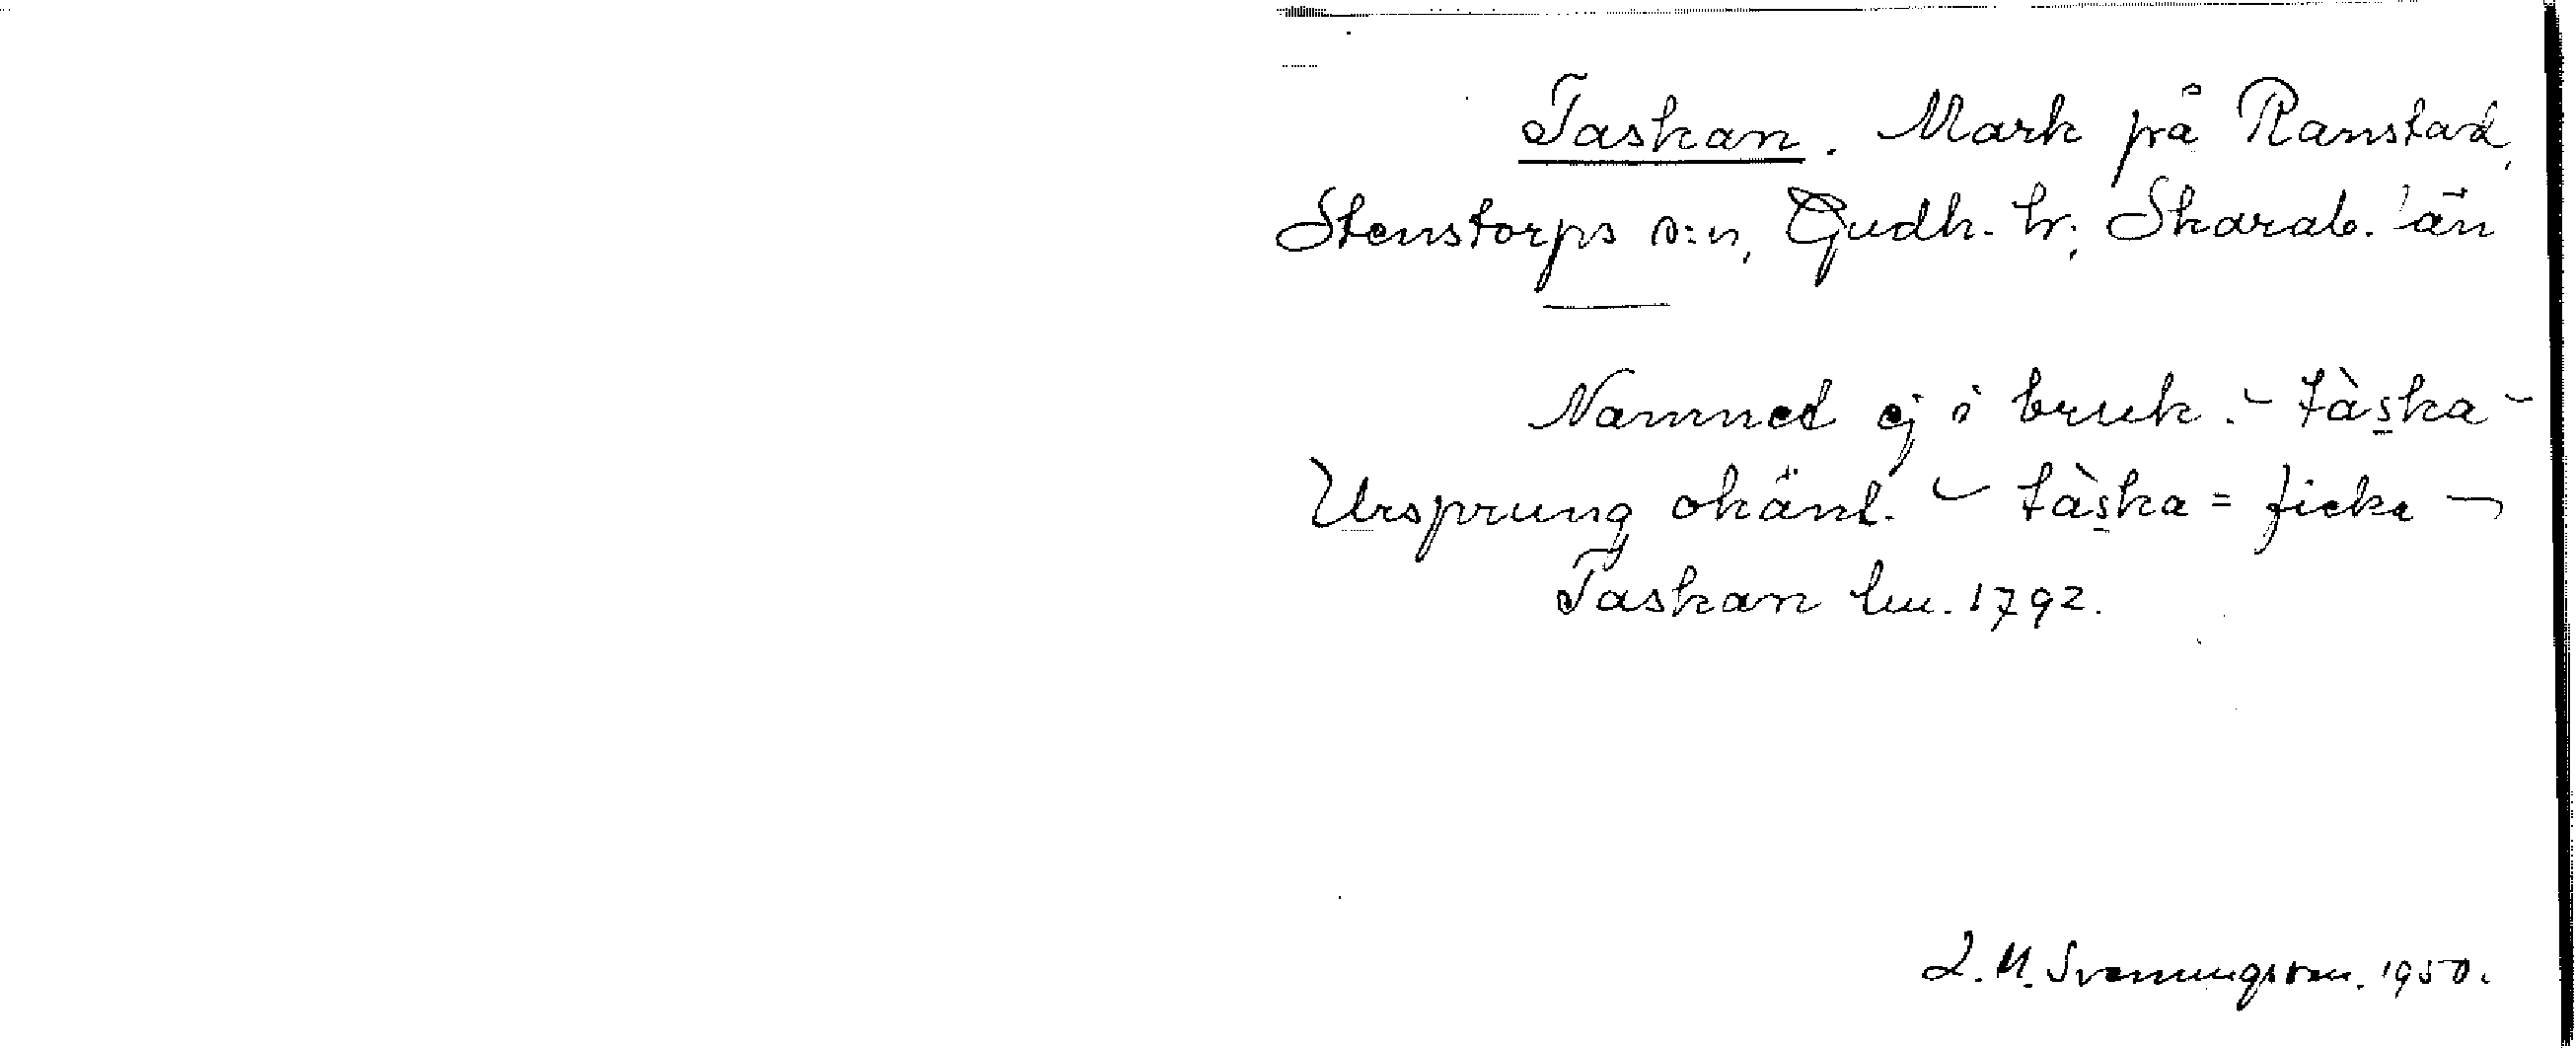 Taskan. Mark på Ranstad,
Stenstorps s:n, Gudh. hr, Skarab. län
Namnet ej i bruk. - tàska -
Ursprung okänt. - tàska = ficka -
Taskan lm. 1792.
L.M. Svenungsson. 1950.